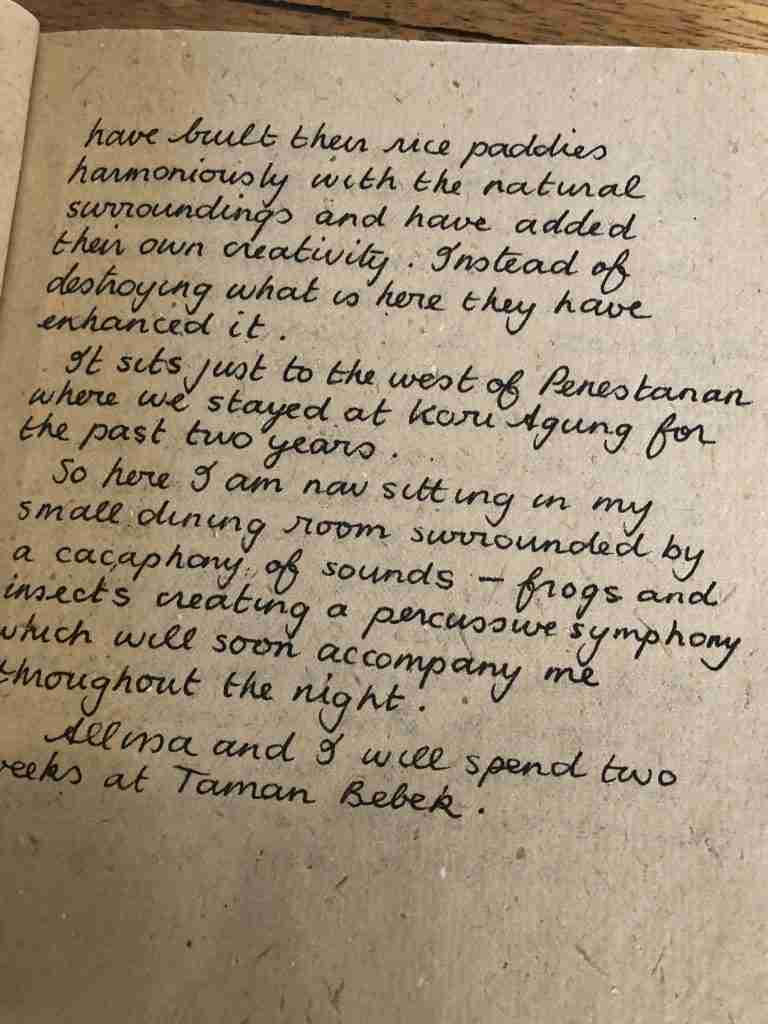 have built their rice paddies
harmoniously with the natural
surroundings and have added
their own creativity. Instead of
destroying what is here they have
enhanced it.
It sits just to the west of Penestanan
where we stayed at Kori Agung for
the past two years.
So here I am now sitting in my
small dining room surrounded by
a cacaphony of sounds – frogs and
insects creating a percussive symphony
which will soon accompany me
throughout the night.
and I will spend two
weeks at Taman Bebek.